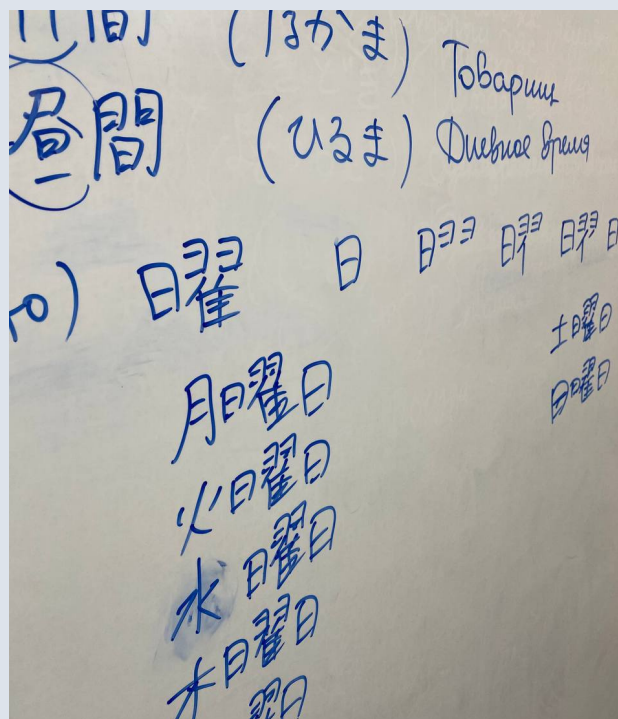 間 (なかま) Товарищ
昼間 (ひるま) Дневное время
10) 曜 日
土曜日
日曜日
月曜日
火曜日
水曜日
木曜日
曜日